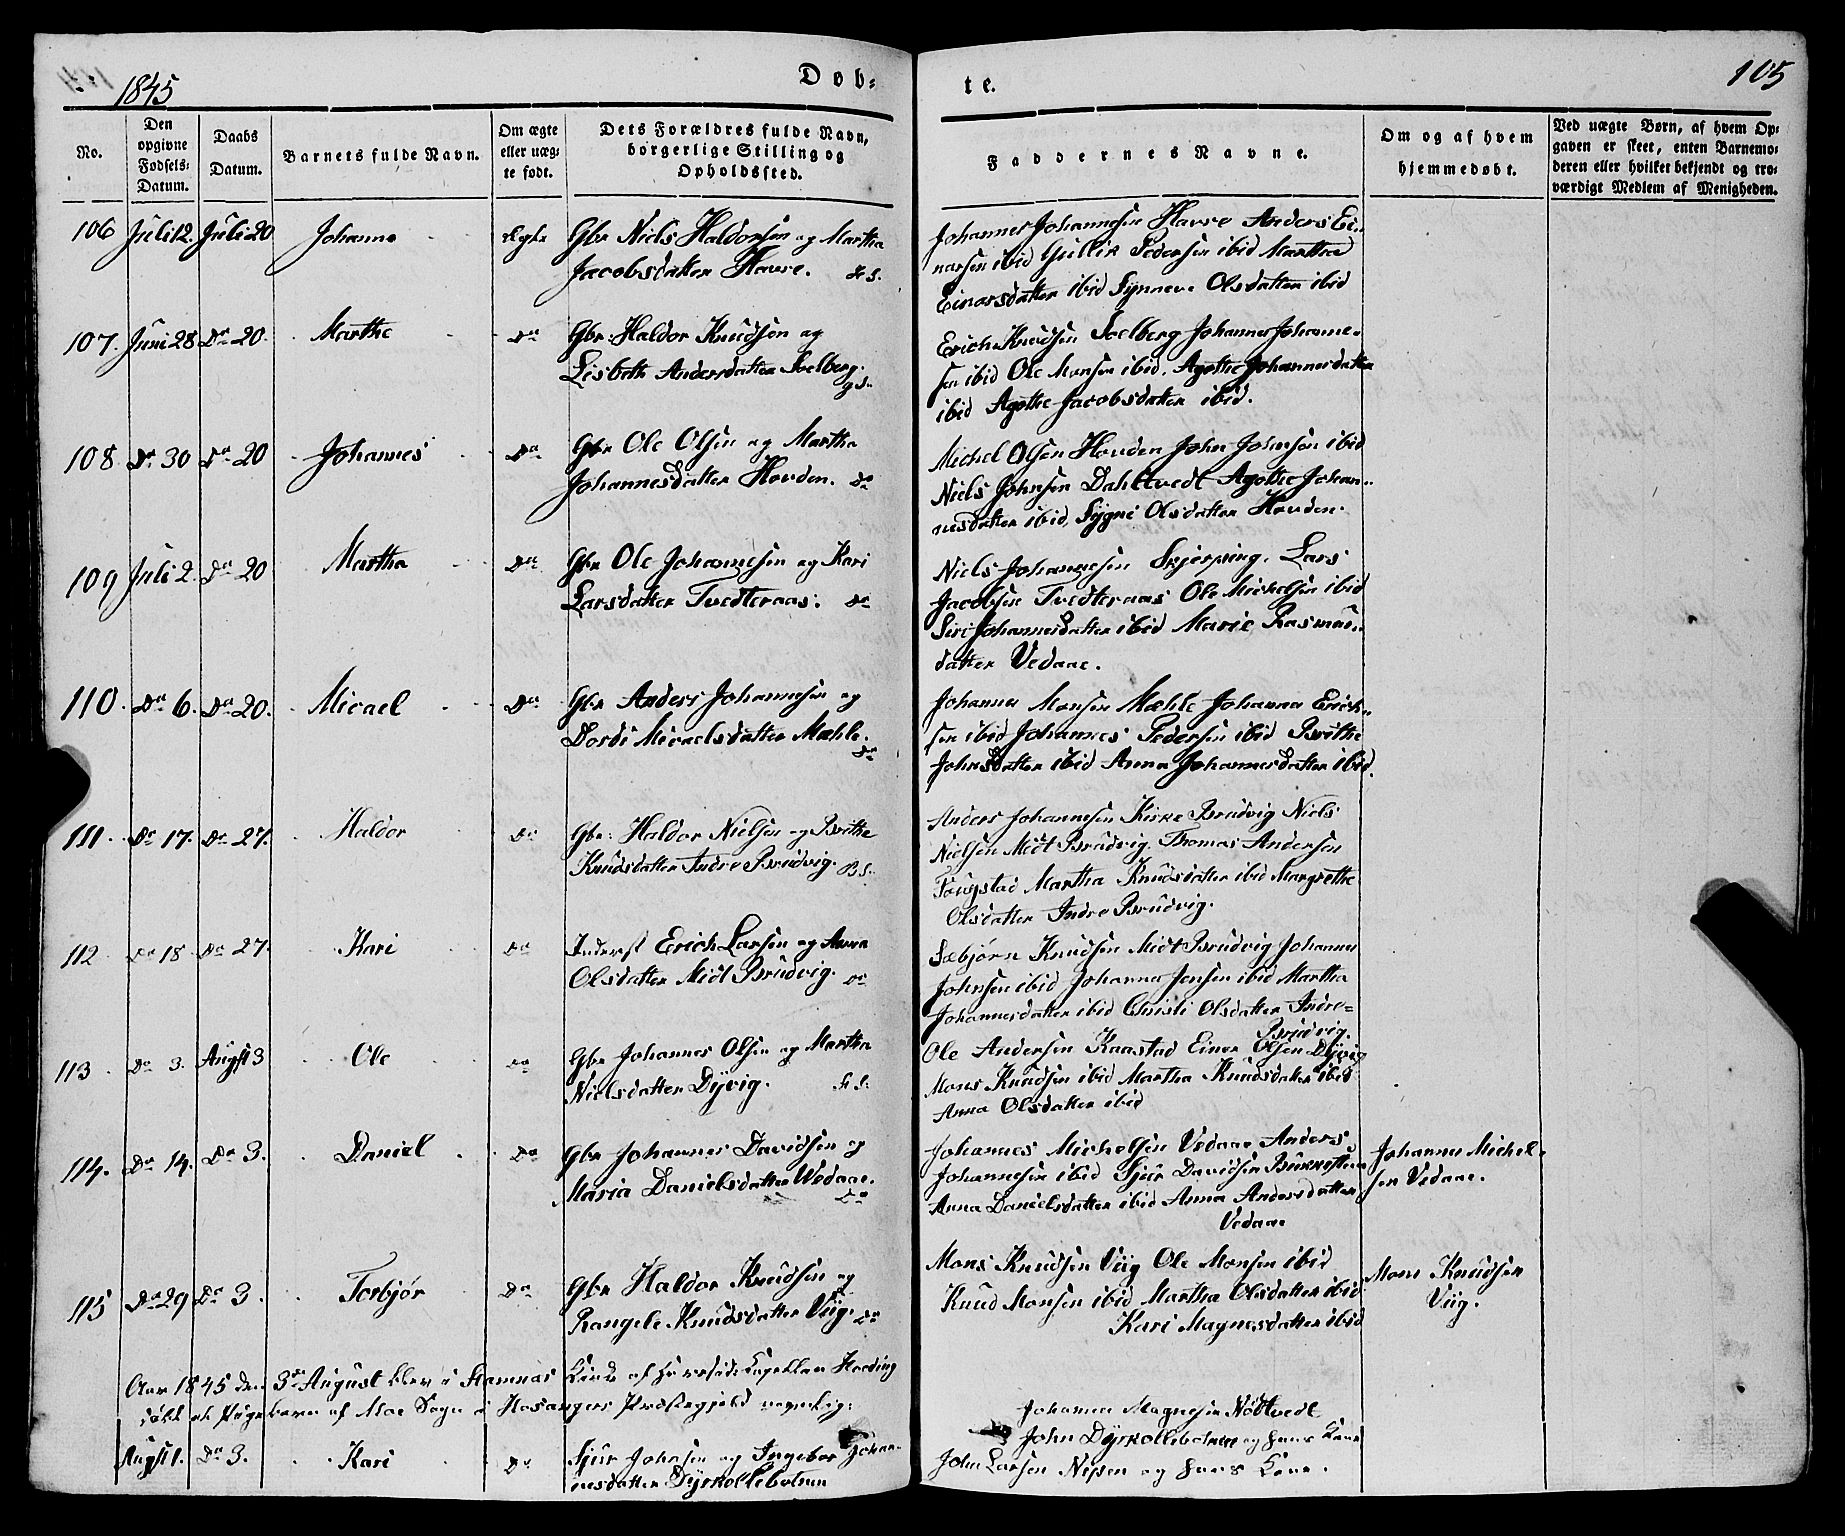 1845
Døb-
te.
105
No.
Den opgivne Fødsels-Datum.
Daabs Datum.
Barnets fulde Navn.
Om ægte eller uægte født.
Dets Forældres fulde Navn, borgerlige Stilling og Opholdssted.
Faddernes Navne.
Om og af hvem hjemmedøbt.
Ved uægte Børn, af hvem Opgaven er skeet, enten Barnemoderen eller hvilket bekjendt og troværdigt Medlem af Menigheden.
106 Juli 12. Juli 20 Johanna Ægte Gbr Niels Haldorsen og Martha
Jacobsdatter Havre.
Johannes Johannesen Havre Anders Ei-
narsen ibid Gullik Pedersen ibid Martha
Einarsdatter ibid Synneve Olsdatter ibid
107. Juni 28 Do 20. Marthe Do Gbr: Haldor Knudsen og
Lisbeth Andersdatter Solberg.
Erich Knudsen Solberg Johannes Johanne-
sen ibid Ole Monsen ibid. Agathe Johannesdatter
ibid Agathe Jacobsdatter ibid.
108 Do 30 Do 20 Johannes Do Gbr Ole Olsen og Martha
Johannesdatter Hovden. Do
Michel Olsen Hovden John Johnsen ibid
Niels Johnsen Dahltvedt Agathe Johan-
nesdatter ibid, Sygni Olsdatter Hovden.
109 Juli 2. Do 20 Martha Do Gbr Ole Johannesen og Kari
Larsdatter Tvedteraas. Do
Niels Johannesen Skjerping. Lars
Jacobsen Tvedteraas Ole Michelsen ibid
Siri Johannesdatter ibid Marie Rasmus-
datter Vedaae.
110. Do 6. Do 20. Micael Do Gbr Anders Johannesen og
Dordi Micaelsdatter Mæhle. Do
Johannes Monsen Mæhle Johannes Erich-
sen ibid Johannes Pedersen ibid Brithe
Johnsdatter ibid Anna Johannesdatter ibid.
111. Do 17. Do 27. Haldor Do Gbr: Haldor Nielsen og Brithe
Knudsdatter Indre Brudvig. B.S.
Anders Johannesen Kirke Brudvig Niels
Nielsen Midt Brudvig. Thomas Andersen
Fougstad Martha Knudsdatter ibid Margrethe
Olsdatter Indre Brudvig.
112 Do 18 Do 27. Kari Do Inderst Erich Larsen og Anna
Olsdatter Midt Brudvig. Do
Sæbjørn Knudsen Midt Brudvig Johannes
Johnsen ibid Johannes Jensen ibid Martha
Johannesdatter ibid Christi Olsdatter Indre-
Brudvig.
113 Do 3. Augst 3 Ole Do Gbr Johannes Olsen og Martha
Nielsdatter Dyvig.
Ole Andersen Kaastad Einar Olsen Dyvig
Mons Knudsen ibid Martha Knudsdatter ibid
Anna Olsdatter ibid
114. Do 14. Do 3. Daniel Do Gbr Johannes Davidsen og
Maria Danielsdatter Wedaae. Do
Johannes Michelsen Vedaae Anders
Johannesen ibid Sjur Davidsen
Anna Danielsdatter ibid Anna Andersdatter
Vedaae
Johannes Michel-
sen Vedaae.
115 Do 29 Do 3. Torbjør Do Gbr Haldor Knudsen og
Rangele Knudsdatter Viig. Do
Mons Knudsen Viig Ole Monsen ibid
Knud Monsen ibid Martha Olsdatter ibid
Kari Magnesdatter ibid
Mons Knudsen
Viig.
Aar 1845 den 3de August blev i Stamnæs Kirke af Capellan Harding
døbt et Pigebarn af Moe Sogn i Hosanger Præstegjeld nemlig:
Augst 1. Do 3. Kari Do Sjur Johnsen og Ingebor Johan-
nesdatter Dyrkollebotnen
Johannes Magnesen Nødtvedt
John Dyrkollebotnen og hans Kone
John Larsen og hans Kone.